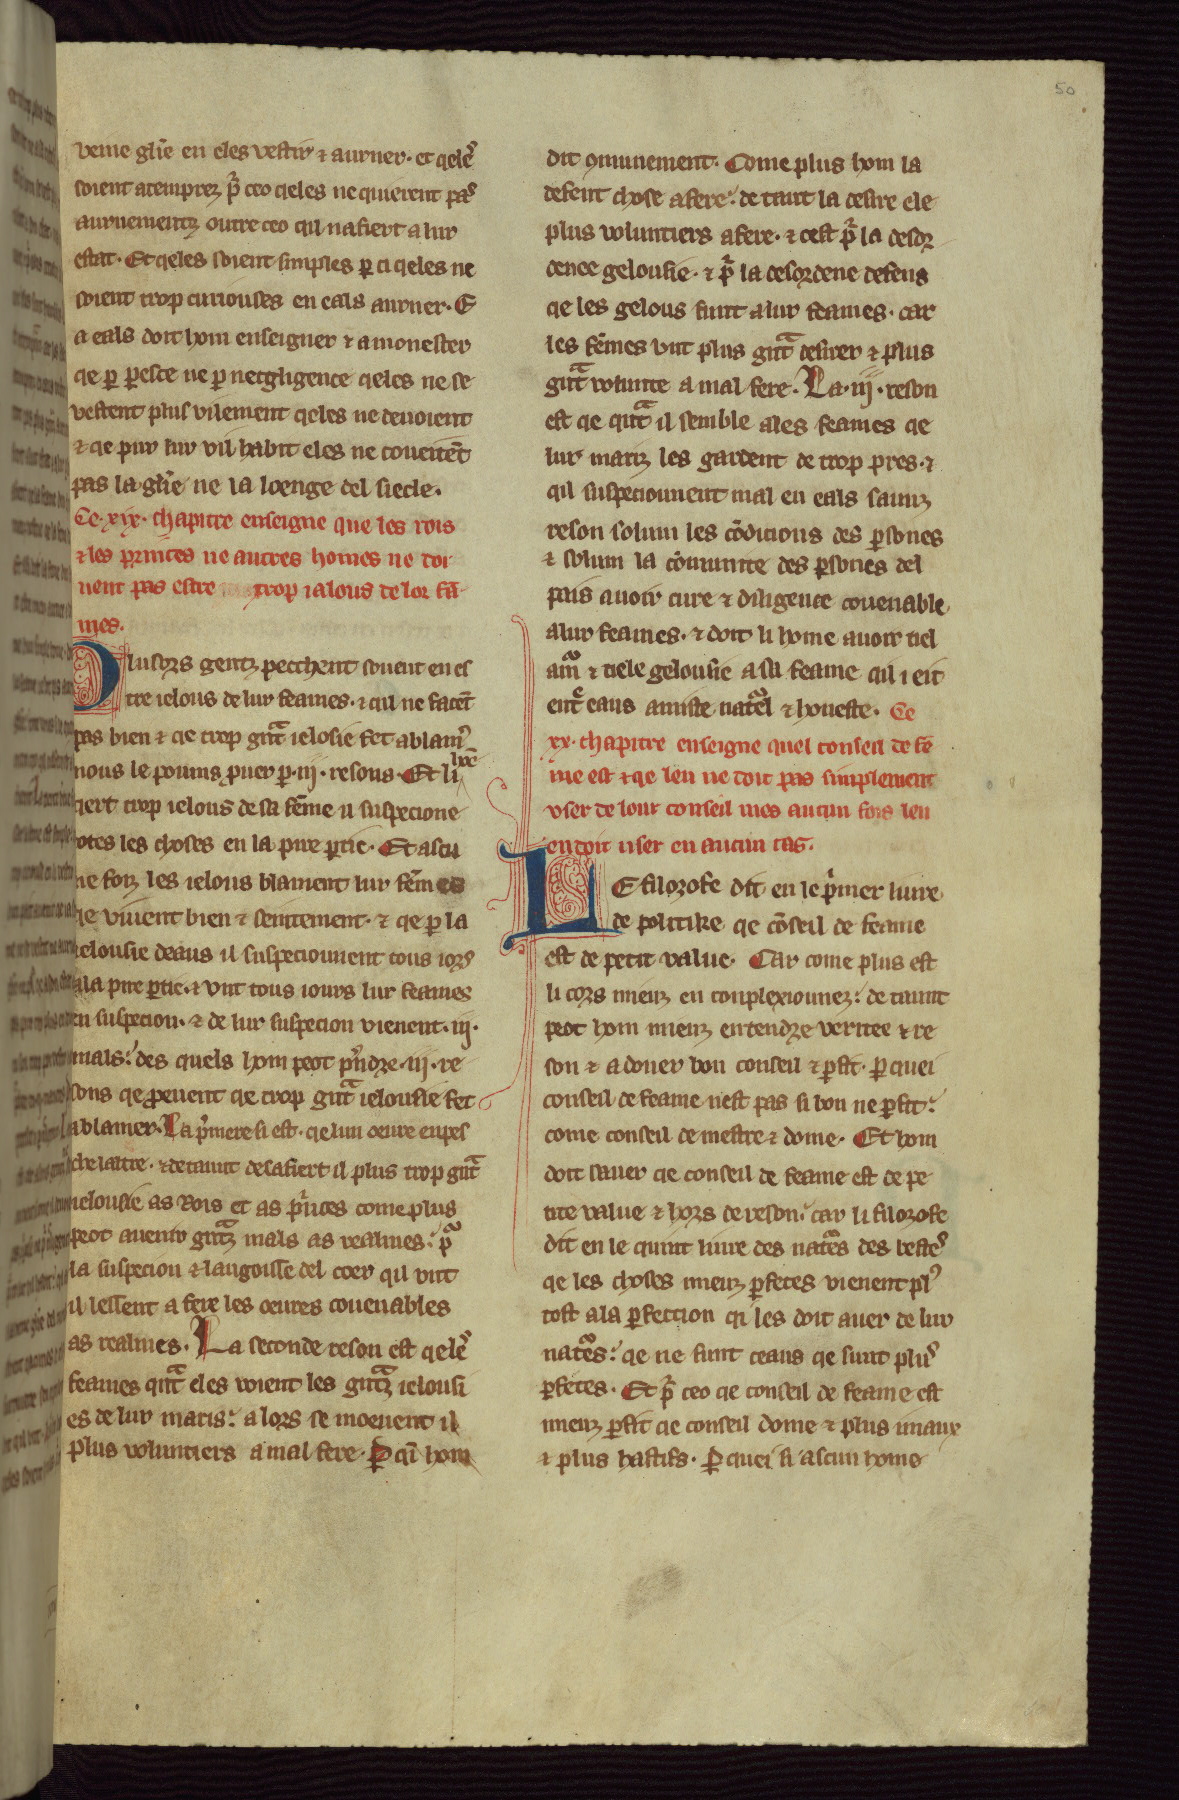 50
veine gl̃ie en eles vestir ⁊ aurner. et qeleˀ
soient atemprez p̃r ceo qeles ne quierent paˢ
aurnementz outre ceo qil nafiert a lur
estat. Et qeles soient simples p̱ ci qeles ne
soient trop curiouses en eals aurner. E
a eals doit hom enseigner ⁊ amonester
qe p̱ p̱esce ne p̱ necgligence qeles ne se
vestent plus vilement qeles ne devoient
⁊ qe pur lur vil habit eles ne coveitẽt
pas la gl̃ie ne la loenge del siecle.
Ce .xix. chapitre enseigne que les rois
⁊ les princes ne autres homes ne doi
vent pas estre trop ialous de lor fã
mes.
Plusors gentz pecchent sovent en es
tre ielous de lur feames. ⁊ qil ne facẽt
pas bien ⁊ qe trop gᵃnt ielosie fet a blamˀ
nous le poums p̱ver p̱ .iij. resons. Et li hõe
qert trop ielous de sa fẽme il suspecione
totes les choses en la pire p̱tie. Et ascu
ne foiz les ielous blament lur fẽmes
qe vivent bien ⁊ seintement. ⁊ qe p̱ la
ielousie deaus il suspecionnent tous iors
a la pire p̱tie. ⁊ unt tous iours lur feames
en suspecion. ⁊ de lur suspecion vienent .iij.
mals: des quels hom peot pˀndre .iij. re
sons qe p̱vent qe trop gᵃnt ielousie fet
a blamer. La pˀmere si est. qe lun oevre enpes
che lautre. ⁊ de tant desafiert il plus trop gᵃnt
ielousie as Rois et as pˀnces come plus
peot avenir gᵃntz mals as realmes: pᵃ
la suspecion ⁊ langoisse del coer qil unt
il lessent a fere les oevres covenables
as realmes. La seconde reson est qe leˢ
feames qᵃnt eles voient les gᵃntz ielousi
es de lur maris: alors se moevent il
plus voluntiers a mal fere. P̱ qi hom
dit ꝯmunement. Come plus hom la
defent chose a fere: de tant la desire ele
plus voluntiers a fere. ⁊ cest p̃r la desor
denee gelousie. ⁊ p̃r la desordene defens
qe les gelous funt a lur feames. car
les fẽmes unt plus gᵃnt desirer ⁊ plus
gᵃnt volunte a mal fere. La .iij. reson
est qe qᵃnt il semble a les feames qe
lur mariz les gardent de trop pres. ⁊
qil suspecionnent mal en eals saunz
reson solum les cõdicions des p̱sones
⁊ solum la cõmunite des p̱sones del
pais avoir cure ⁊ diligence covenable
a lur feames. ⁊ doit li home avoir tiel
amᵒ ⁊ tiele gelousie a sa feame qil i eit
entˀ eaus amiste natˀel ⁊ honeste. Ce
.xx. chapitre enseigne quel conseil de fe
me est ⁊ qe len ne doit pas simplement
user de lour conseil mes aucun fois len
en doit user en aucun cas.
Le filozofe dit en le pˀmer livre
de politike qe cõseil de feame
est de petit value. Car come plus est
li cors mieuz en conplexionnez: de taunt
peot hom mieuz entendre veritee ⁊ re
son ⁊ a doner bon conseil ⁊ p̱fit. P̱ quei
conseil de feame nest pas si bon ne p̱fit:
come conseil de mestre ⁊ dome. Et hom
doit saver qe conseil de feame est de pe
tite value ⁊ hors de reson: car li filozofe
dit en le quint livre des natˀes des besteˢ
qe les choses mieuz p̱fetes vienent plˀ
tost a la p̱fection qi les doit aver de lur
natˀes: qe ne funt ceaus qe sunt pluˢ
p̱fetes. Et p̃r ceo qe conseil de feame est
mieuz p̱fit qe conseil dome ⁊ plus
⁊ plus hastifs. P̱ quei si ascun home